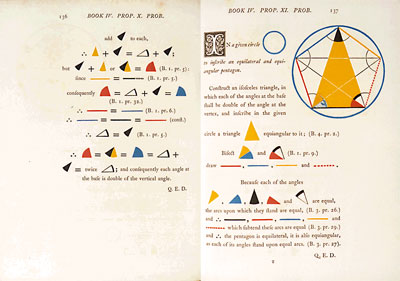 136 BOOK IV. PROP. X. PROB.
add to each,
+ = + ;
but + or = (B. 1. pr. 5):
since = (B. 1. pr. 5)
consequently = + =
(B. 1. pr. 32.)
∴ = (B. 1. pr. 6.)
∴ = = (conſt.)
∴ = (B. 1. pr. 5.)
∴ = = = + =
= twice ; and conſequently each angle at
the baſe is double of the vertical angle.
Q. E. D.
BOOK IV. PROP. XI. PROB. 137
IN a given circle
to inſcribe an equilateral and equi-
angular pentagon.
Conſtruct an iſoſceles triangle, in
which each of the angles at the baſe
ſhall be double of the angle at the
vertex, and inſcribe in the given
circle a triangle equiangular to it; (B. 4. pr. 2.)
Biſect and (B. 1. pr. 9.)
draw , , and .
Becauſe each of the angles
, , , and are equal,
the arcs upon which they ſtand are equal, (B. 3. pr. 26.)
and ∴ , , , and
which ſubtend theſe arcs are equal (B. 3. pr. 29.)
and ∴ the pentagon is equilateral, it is alſo equiangular,
as each of its angles ſtand upon equal arcs. (B. 3. pr. 27).
Q. E. D.